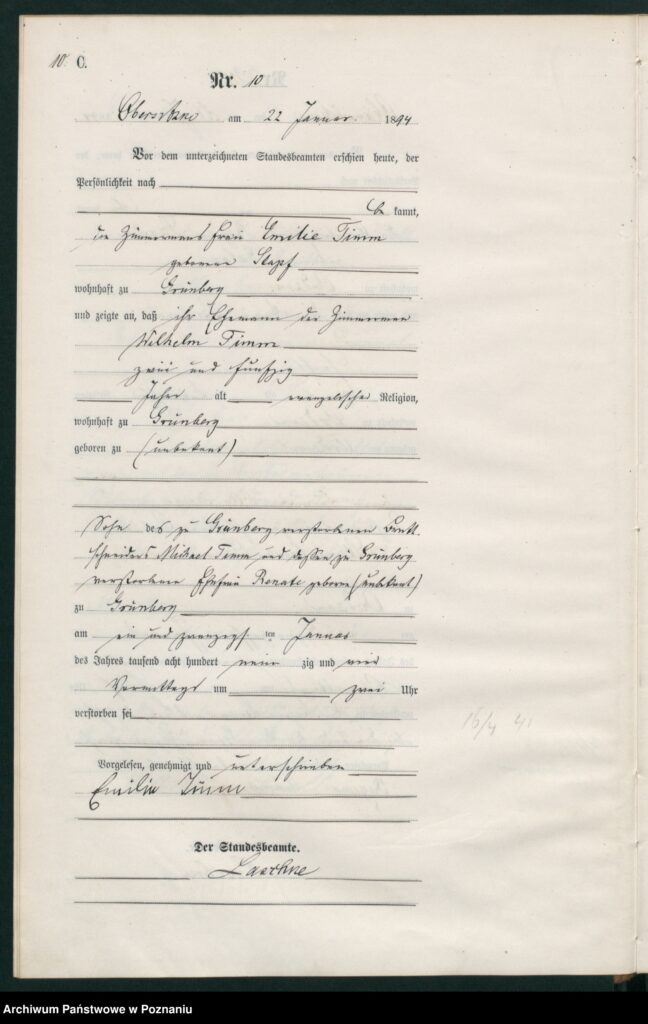 10. C.
Nr. 10
Obersitzko am 22 Januar 1894
Vor dem unterzeichneten Standesbeamten erschien heute, der
Persönlichkeit nach
be kannt,
die Zimmermanns Frau Emilie Timm
geborene Stapf
wohnhaft zu Grünberg
und zeigte an, daß ihr Ehemann der Zimmermann
Wilhelm Timm
zwei und fünfzig
Jahre alt evangelischer Religion,
wohnhaft zu Grünberg
geboren zu (unbekant)
Sohn des zu Grünberg verstorbenen Brett
schneiders Michael Timm und dessen zu Grünberg
verstorbene Ehefrau Renate geborene (unbekant)
zu Grünberg
am ein und zwanzigs ten Januar
des Jahres tausend acht hundert neun zig und vier
Vormittags um zwei Uhr
verstorben sei
Vorgelesen, genehmigt und unterschrieben
Emilie Timm
Der Standesbeamte.
15/4 41
Archiwum Państwowe w Poznaniu